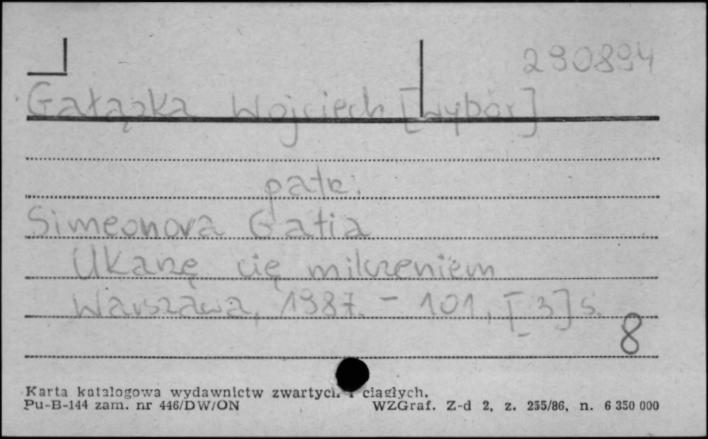 290894
Gałązka Wojciech [wybór]
patrz:
Simeonova Gatia
Ukarzę cię milczeniem
Warszawa, 1987. - 101, [3] s.
8
Karta katalogowa wydawnictw zwartych i ciągłych.
Pu-B-144 zam. nr 446/DW/ON WZGraf. Z-d 2, z. 255/86, n. 6 350 000